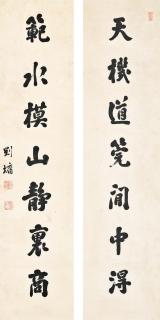 天機道筦閒中得
範水模山靜裏商
劉墉